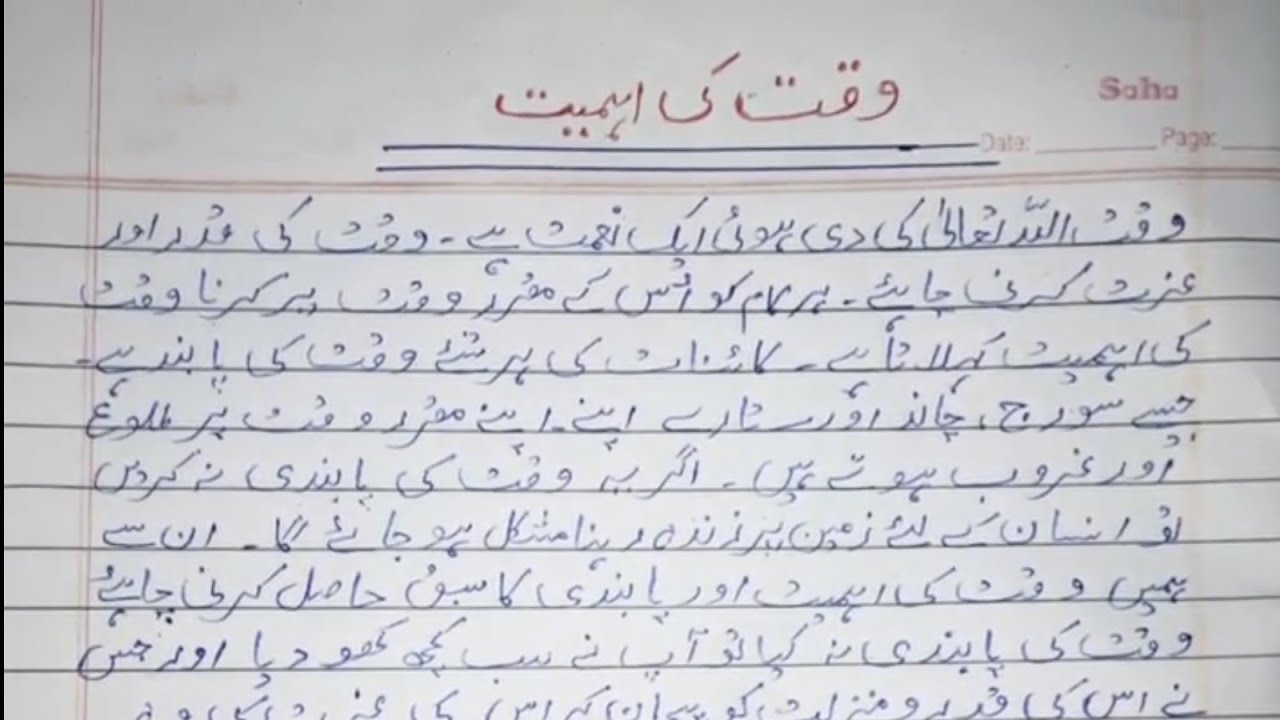 وقت کی اہمیت
Saha
Date:
Page:
وقت اللہ تعالیٰ کی دی ہوئی ایک نعمت ہے۔ وقت کی قدر اور
عزت کرنی چاہئے۔ ہر کام کو اُس کے مقررہ وقت پر کرنا وقت
کی اہمیت کہلاتا ہے۔ کائنات کی ہر شئے وقت کی پابند ہے۔
جسے سورج، چاند اور ستارے اپنے اپنے مقررہ وقت پر طلوع
اور غروب ہوتے ہیں۔ اگر یہ وقت کی پابندی نہ کردیں
تو انسان کے لئے زمین پر زندہ رہنا مشکل ہو جائے گا۔ ان سے
ہمیں وقت کی اہمیت اور پابندی کا سبق حاصل کرنی چاہئے
وقت کی پابندی نہ کیا تو آپ نے سب کچھ کھو دیا اور جس
نے اس کی قدر و منزلت کو پہچان کر اس کی عزت کی وہ